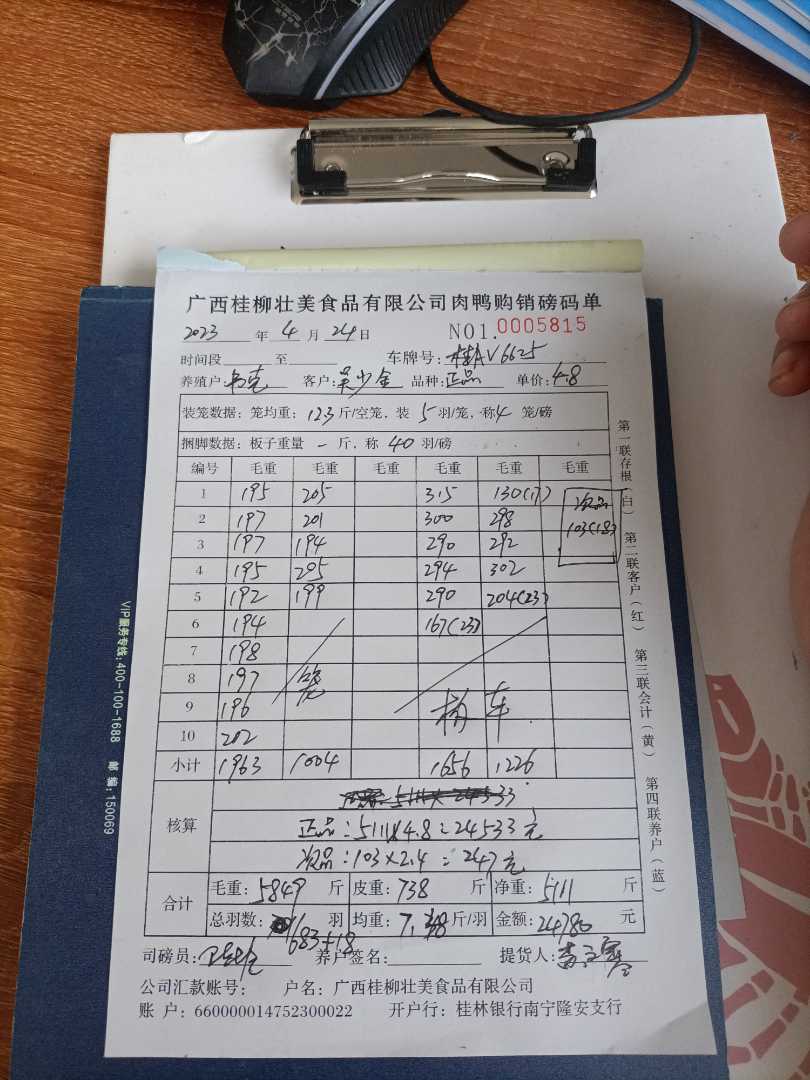 广西桂柳壮美食品有限公司肉鸭购销磅码单
2023 年 4 月 24 日 NO1.0005815
时间段 至 车牌号: 桂AV6625
养殖户: 客户: 吴少全 品种: 正品 单价: 4.8
装笼数据: 笼均重: 12.3 斤/空笼, 装 5 羽/笼, 称 4 笼/磅
捆脚数据: 板子重量 一 斤, 称 40 羽/磅
编号 毛重 毛重 毛重 毛重 毛重 毛重
1 195 205 315 130(17) 次品
2 197 201 300 298 103(18)
3 197 194 290 292
4 195 205 294 302
5 192 199 290 204(23)
6 194 167(23)
7 198
8 197 笼
9 196 车
10 202
小计 1963 1004 1656 1226
核算
正品: 5111×4.8=24533元
次品: 103×2.4=247元
合计
毛重: 5849 斤 皮重: 738 斤 净重: 5111 斤
总羽数: 683+18 羽 均重: 7.48 斤/羽 金额: 24780 元
司磅员: 养户签名: 提货人:
公司汇款账号: 户名: 广西桂柳壮美食品有限公司
账 户: 660000014752300022 开户行: 桂林银行南宁隆安支行
第一联存根(白) 第二联客户(红) 第三联会计(黄) 第四联养户(蓝)
VIP服务专线: 400-100-1688 邮编: 150069